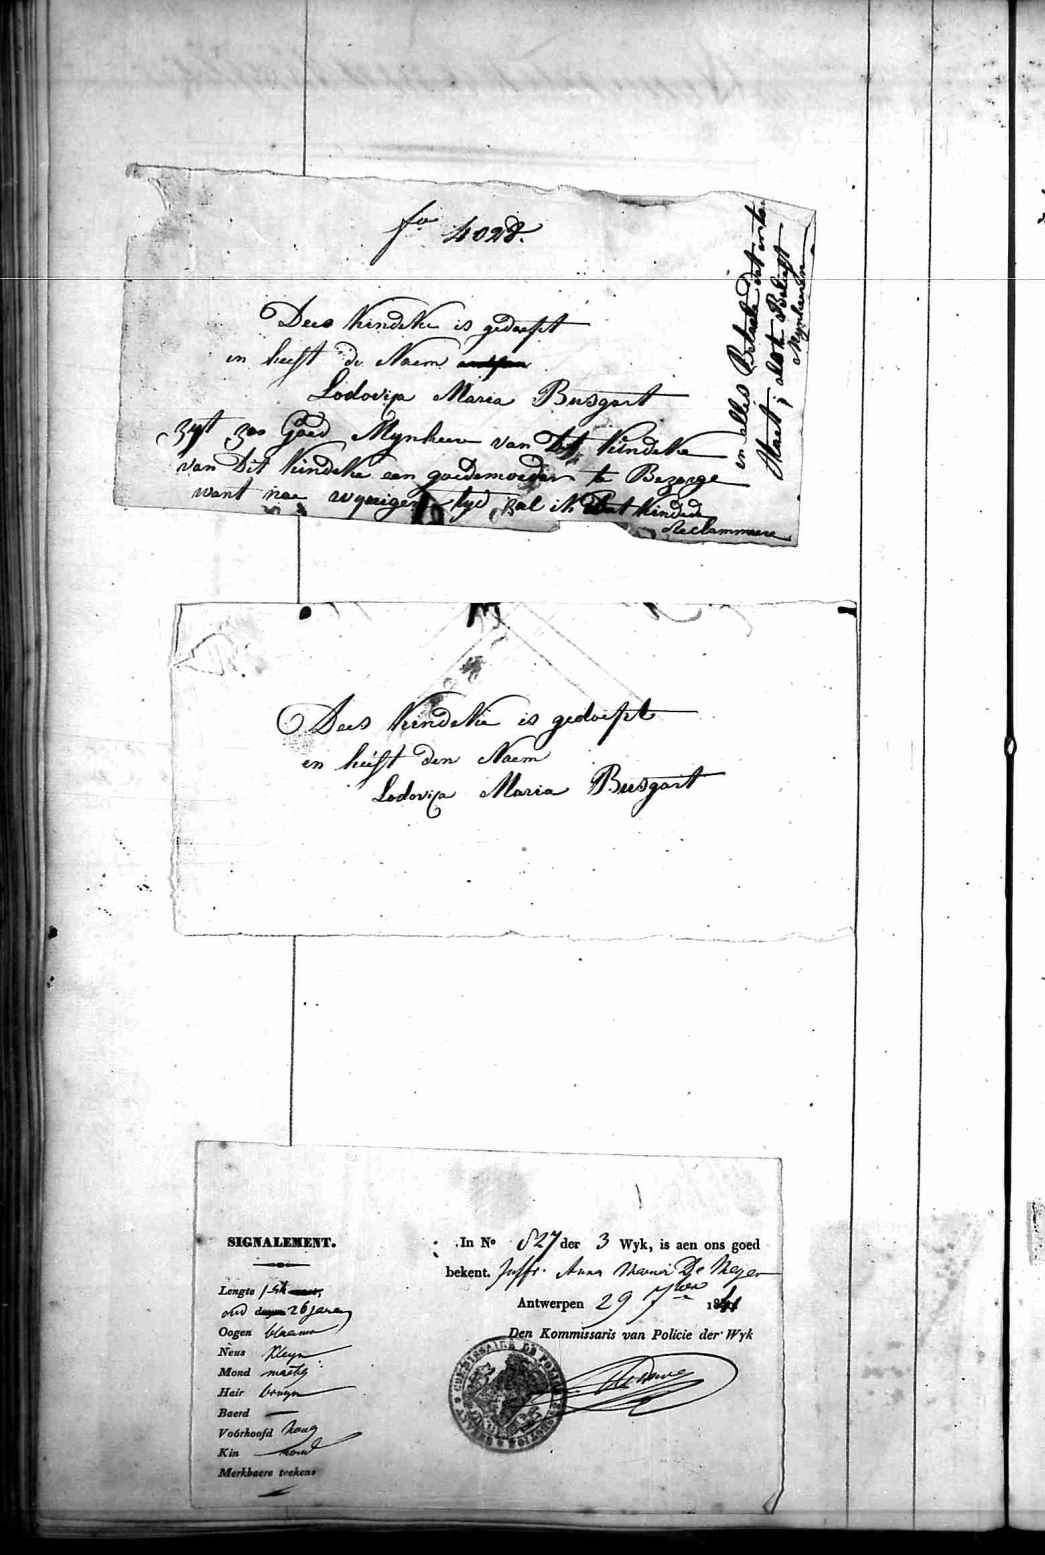 fo 402d.
Dees kindeke is gedoopt
en heeft de Naem
Lodovica Maria Busgart
zyt zoo Goed Mynheer van het kindeke
van Dit kindeke een goedemoeder te Bezorge
want nae wynige tyd zal ik Dat kindeke
Reclammere
en alles Betaele dat er to
staet, als het Belieft
Mynheeren
Dees kindeke is gedoopt
en heeft den Naem
Lodovica Maria Busgart
SIGNALEMENT.
Lengte 1
oud 26 jaren
Oogen blauw
Neus kleyn
Mond matig
Hair bruyn
Baerd —
Voórhoofd hoog
Kin rond
Merkbaere teekens
In No 827 der 3 Wyk, is aen ons goed
bekent. Juffr. Anna Maria De Meyer
Antwerpen 29 7ber 1841
Den Kommissaris van Policie der Wyk
COMMISSAIRE DE POLICE